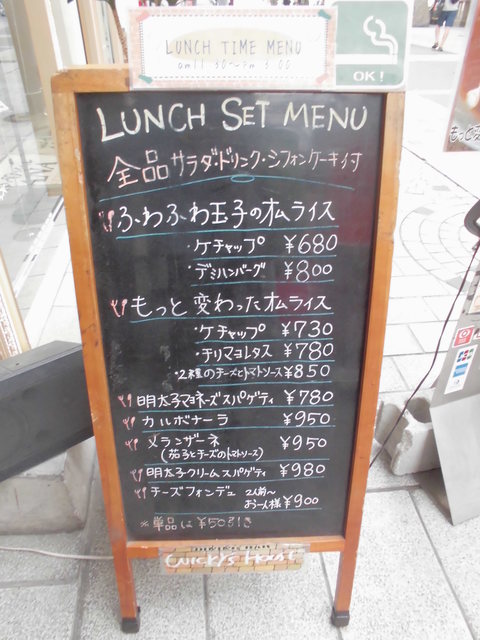 LUNCH TIME MENU
am11:30~Pm3:00
OK!
LUNCH SET MENU
全品 サラダ・ドリンク・シフォンケーキ付
ふわふわ玉子のオムライス
・ケチャップ ¥680
・デミハンバーグ ¥800
もっと変わったオムライス
・ケチャップ ¥730
・テリマヨレタス ¥780
・2種のチーズとトマトソース ¥850
明太子マヨネーズスパゲティ ¥780
カルボナーラ ¥950
メランザーネ ¥950
(茄子とチーズのトマトソース)
明太子クリームスパゲティ ¥980
チーズフォンデュ 2人前~
お一人様 ¥900
※単品は¥50引き
もっと変
JCB